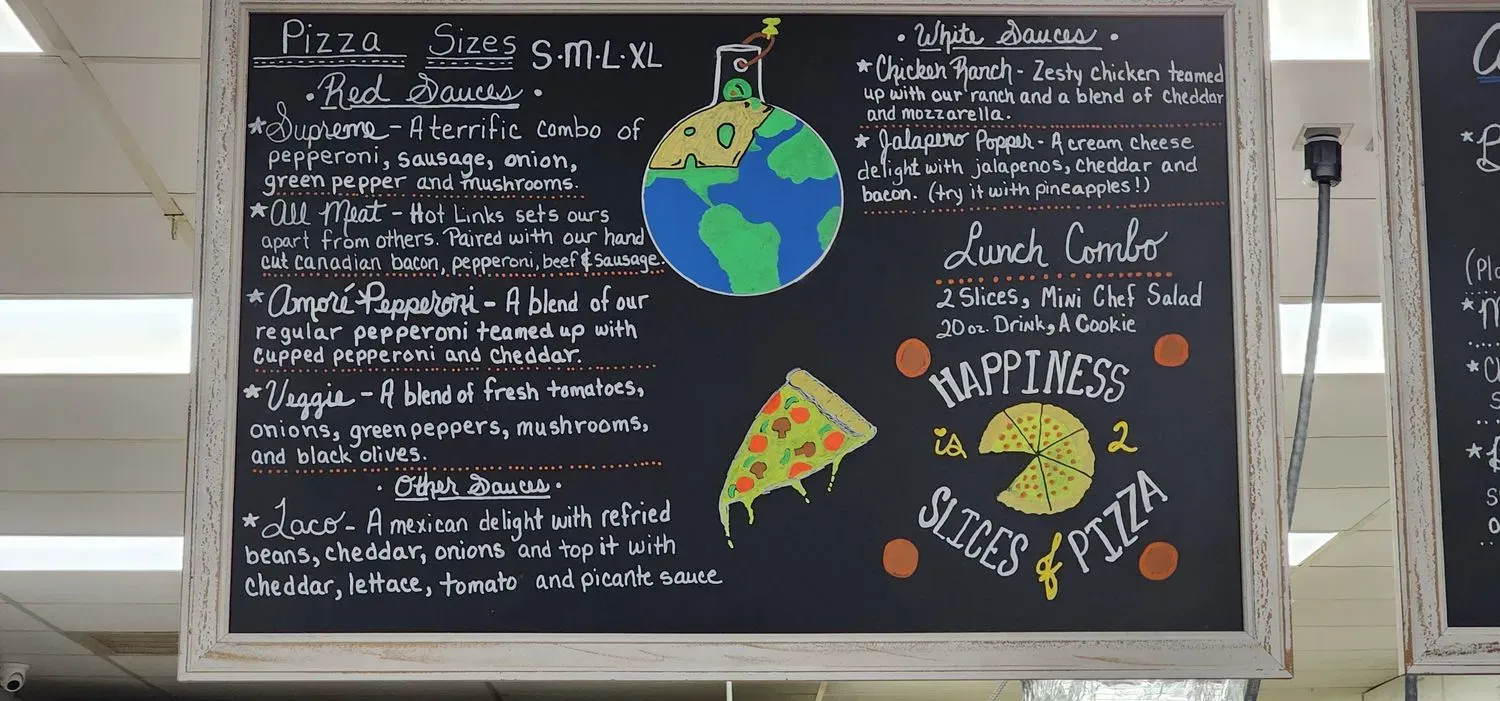 Pizza Sizes S·M·L·XL
· Red Sauces ·
*Supreme - A terrific combo of
pepperoni, sausage, onion,
green pepper and mushrooms.
*All Meat - Hot Links sets ours
apart from others. Paired with our hand
cut Canadian bacon, pepperoni, beef & sausage.
*Amoré Pepperoni - A blend of our
regular pepperoni teamed up with
cupped pepperoni and cheddar.
*Veggie - A blend of fresh tomatoes,
onions, green peppers, mushrooms,
and black olives.
· Other Sauces ·
*Taco - A mexican delight with refried
beans, cheddar, onions and top it with
cheddar, lettace, tomato and picante sauce
· White Sauces ·
*Chicken Ranch - Zesty chicken teamed
up with our ranch and a blend of cheddar
and mozzarella.
*Jalapeno Popper - A cream cheese
delight with jalapenos, cheddar and
bacon. (try it with pineapples!)
Lunch Combo
2 Slices, Mini Chef Salad
20 oz. Drink, A Cookie
HAPPINESS
is 2
SLICES of PIZZA